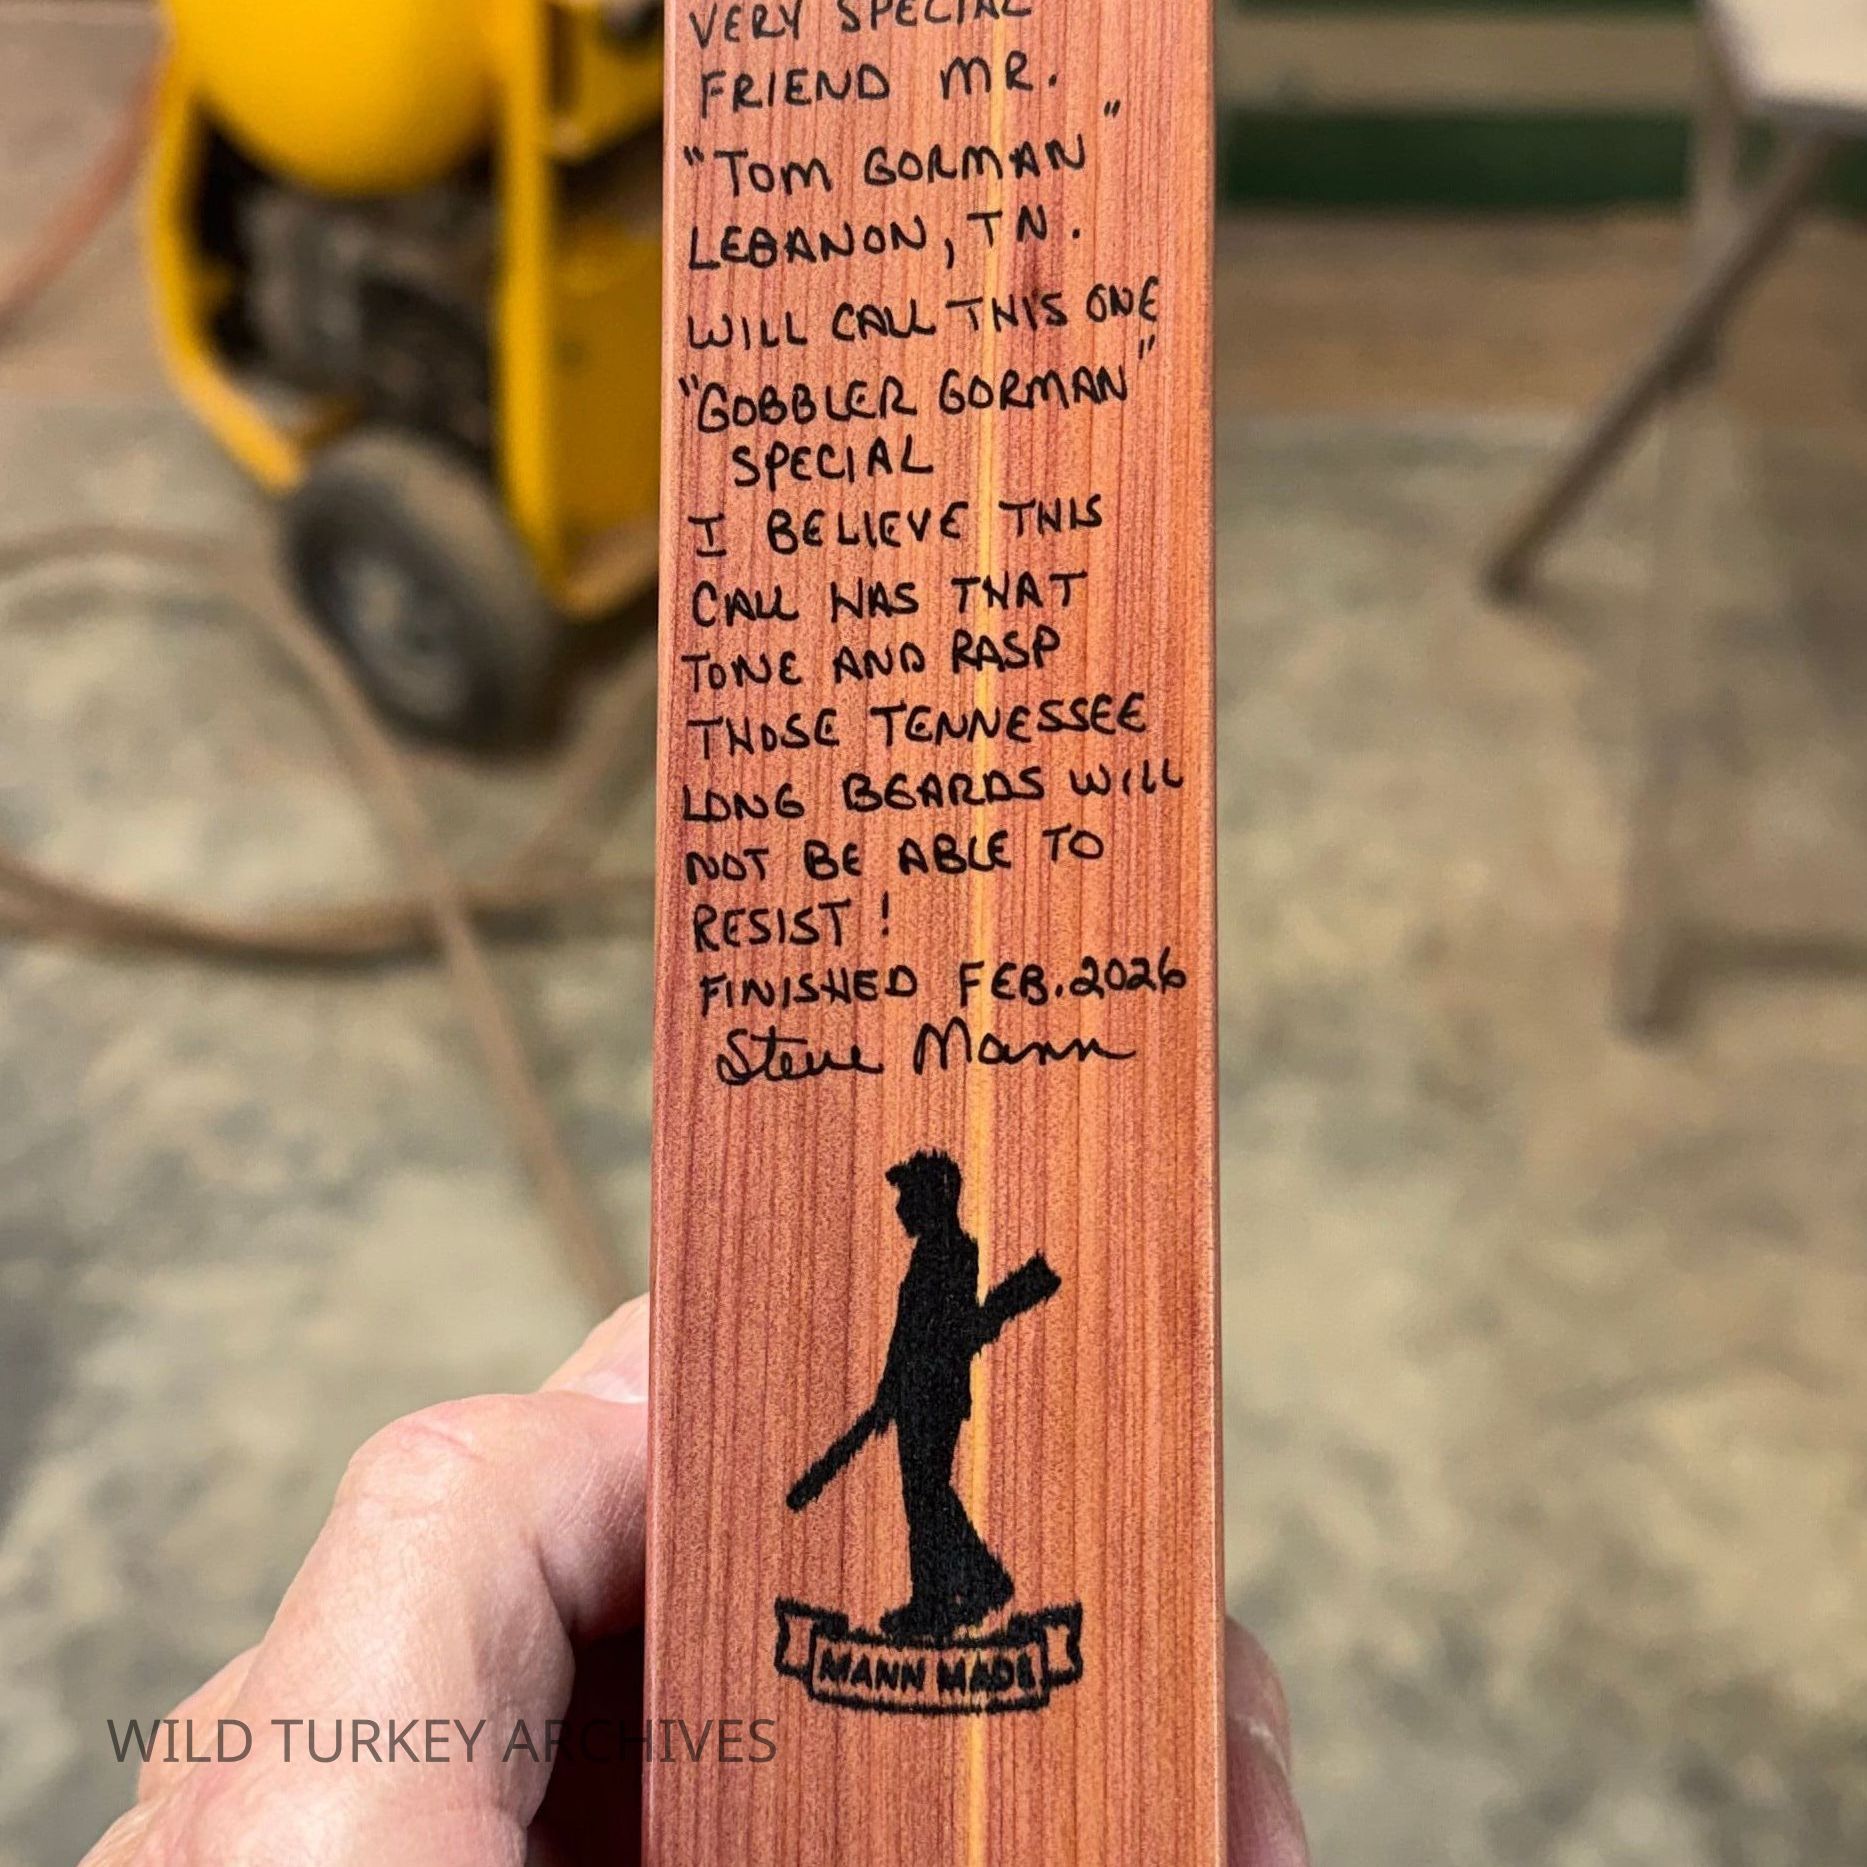 VERY SPECIAL
FRIEND MR.
"TOM GORMAN"
LEBANON, TN.
WILL CALL THIS ONE
"GOBBLER GORMAN"
SPECIAL
I BELIEVE THIS
CALL HAS THAT
TONE AND RASP
THOSE TENNESSEE
LONG BEARDS WILL
NOT BE ABLE TO
RESIST!
FINISHED FEB. 2026
Steve Mann
MANN MADE
WILD TURKEY ARCHIVES